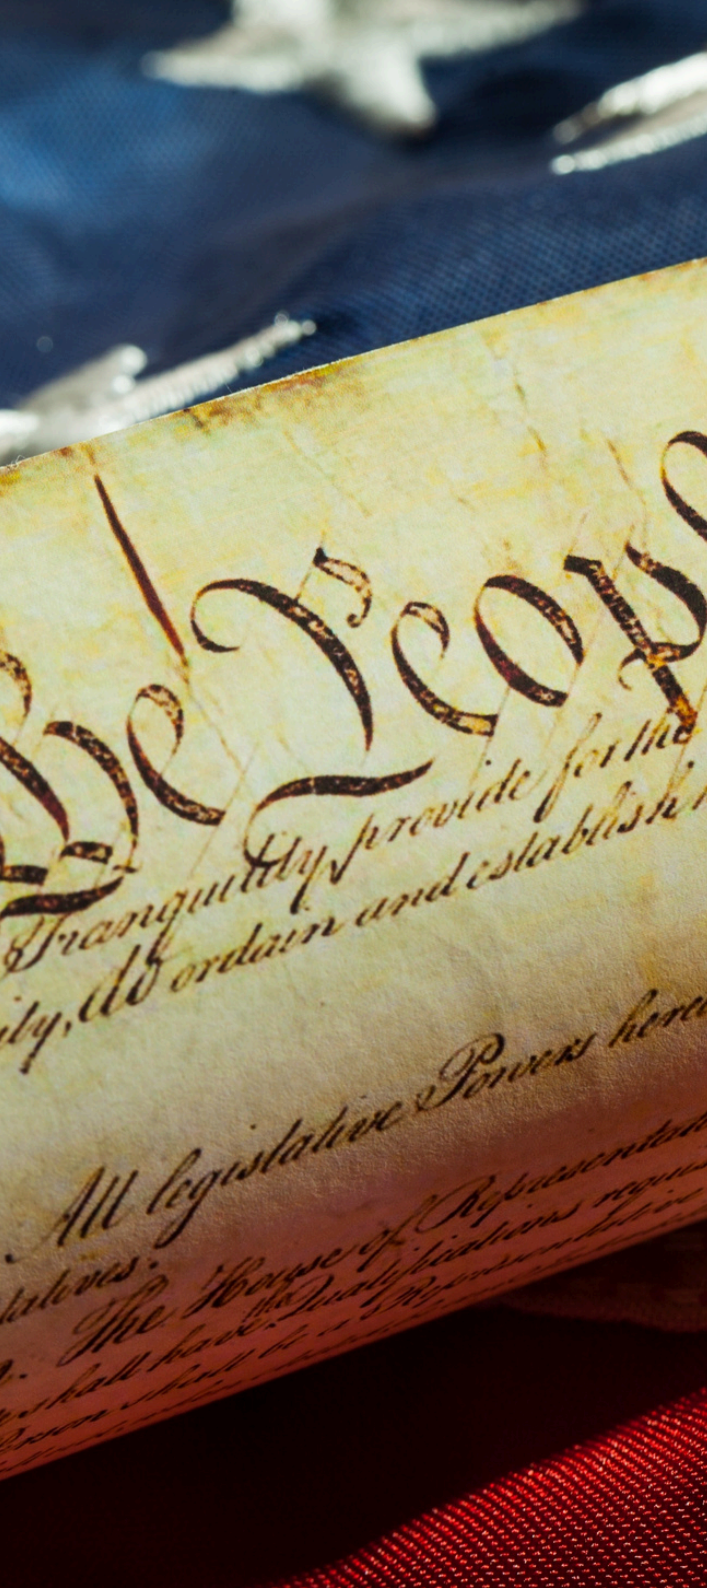 We Peopl
Tranquility, provide for the
ity, do ordain and establish
All legislative Powers herei
tatives.
The House of Representati
shall have the Qualifications requis
erson shall be a Representative